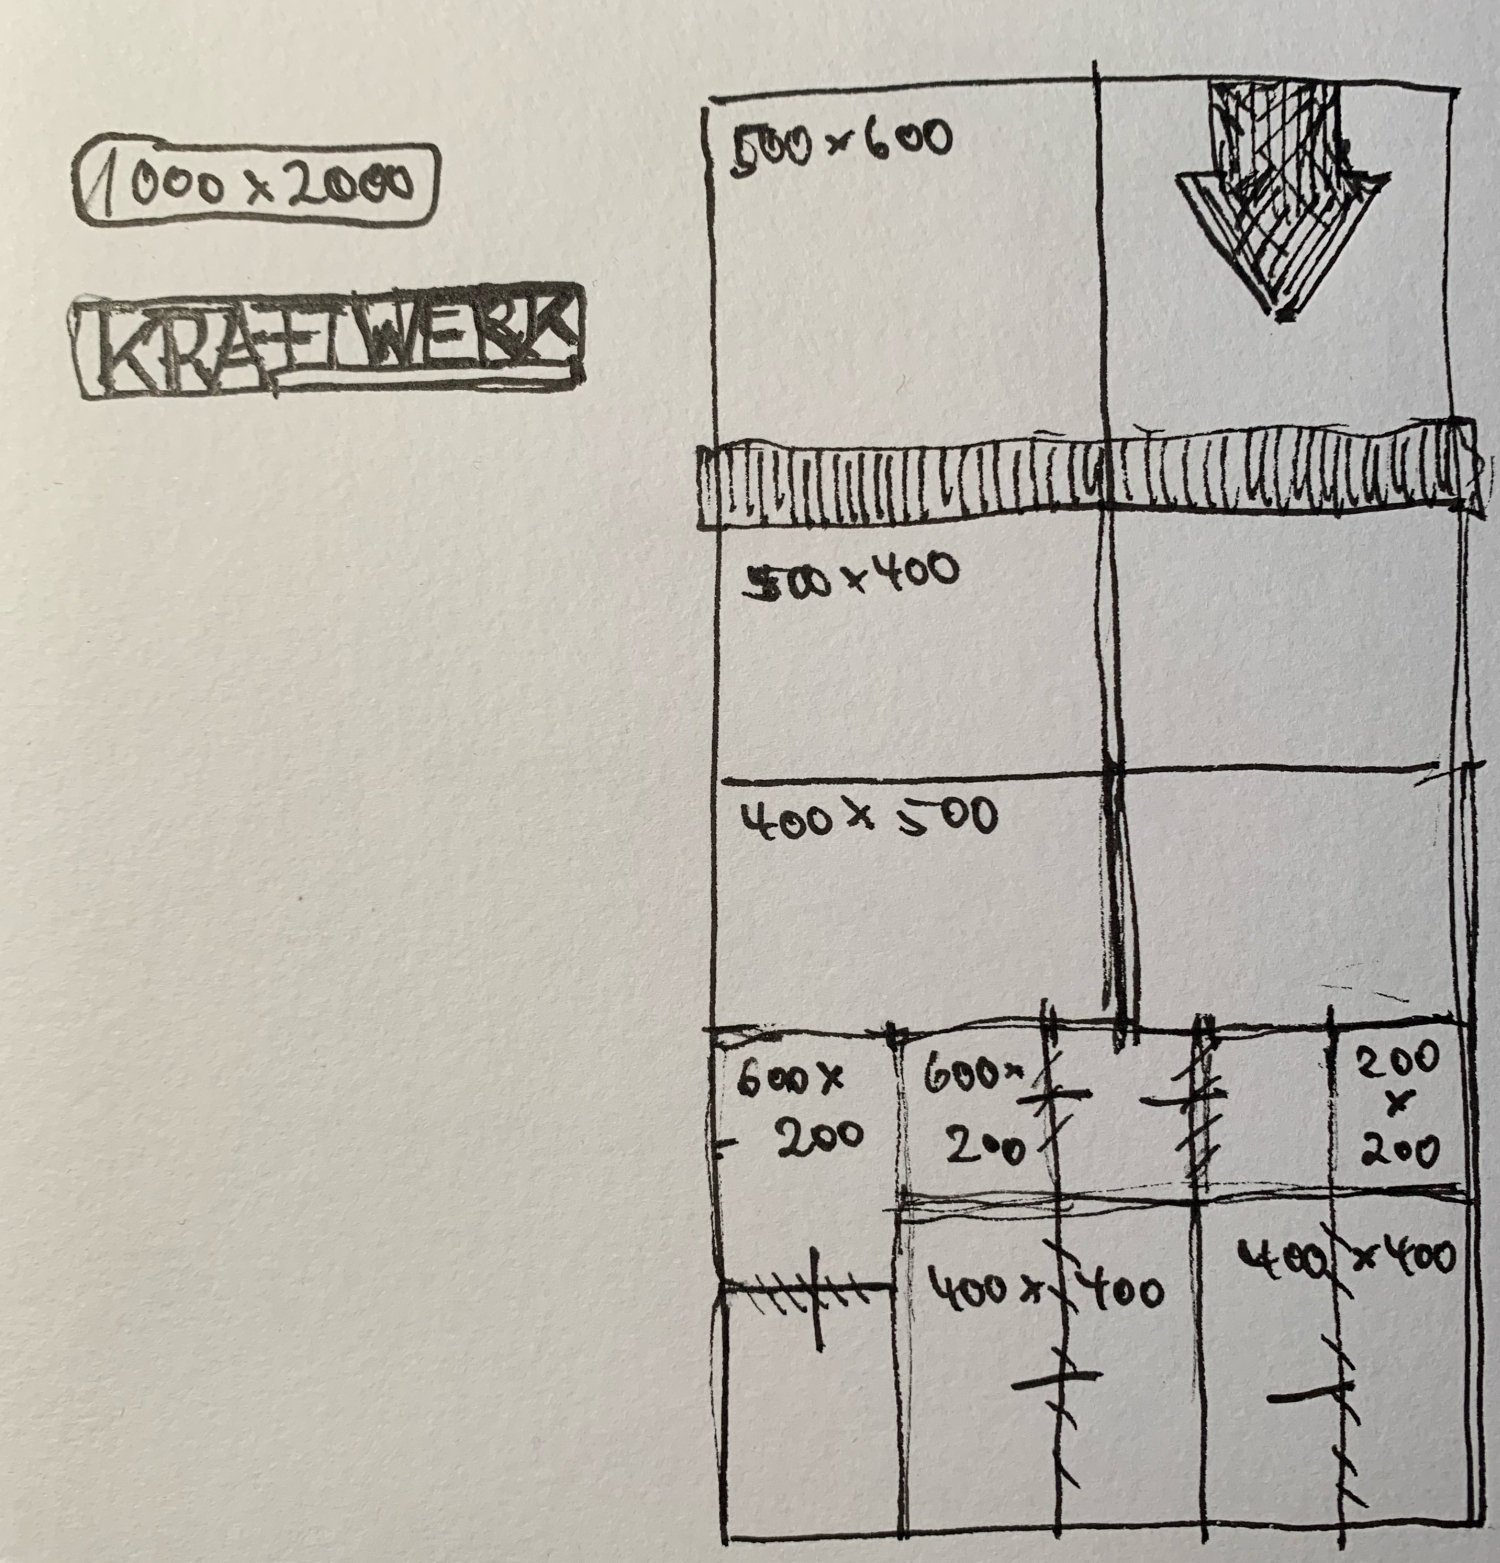 1000 x 2000
KRAFTWERK
500 x 600
500 x 400
400 x 500
600 x
200
600 x
200
200
x
200
400 x 400
400 x 400